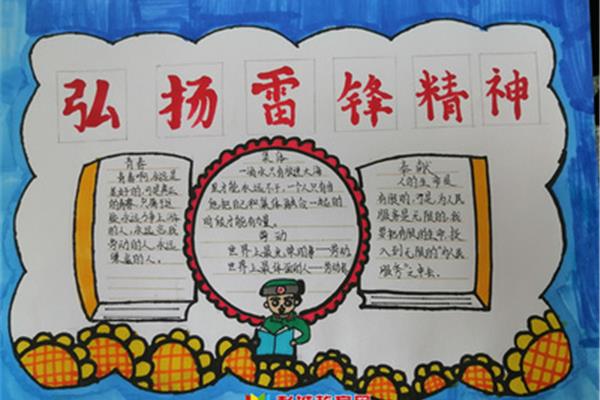 弘扬雷锋精神
青春
青春啊,永远是
美好的,可是真正
的青春,只属于这
些永远力争上游
的人,永远忘我
劳动的人,永远
谦虚的人。
集体
一滴水只有放进大海
里才能永远不干,一个人只有当
他把自己和集体融合一起的
时候才能有力量。
劳动
世界上最光荣的事——劳动
世界上最体面的人——劳动者
奉献
人的生命是
有限的,可是为人民
服务是无限的,我
要把有限的生命,投
入到无限的“为人民
服务”之中去。